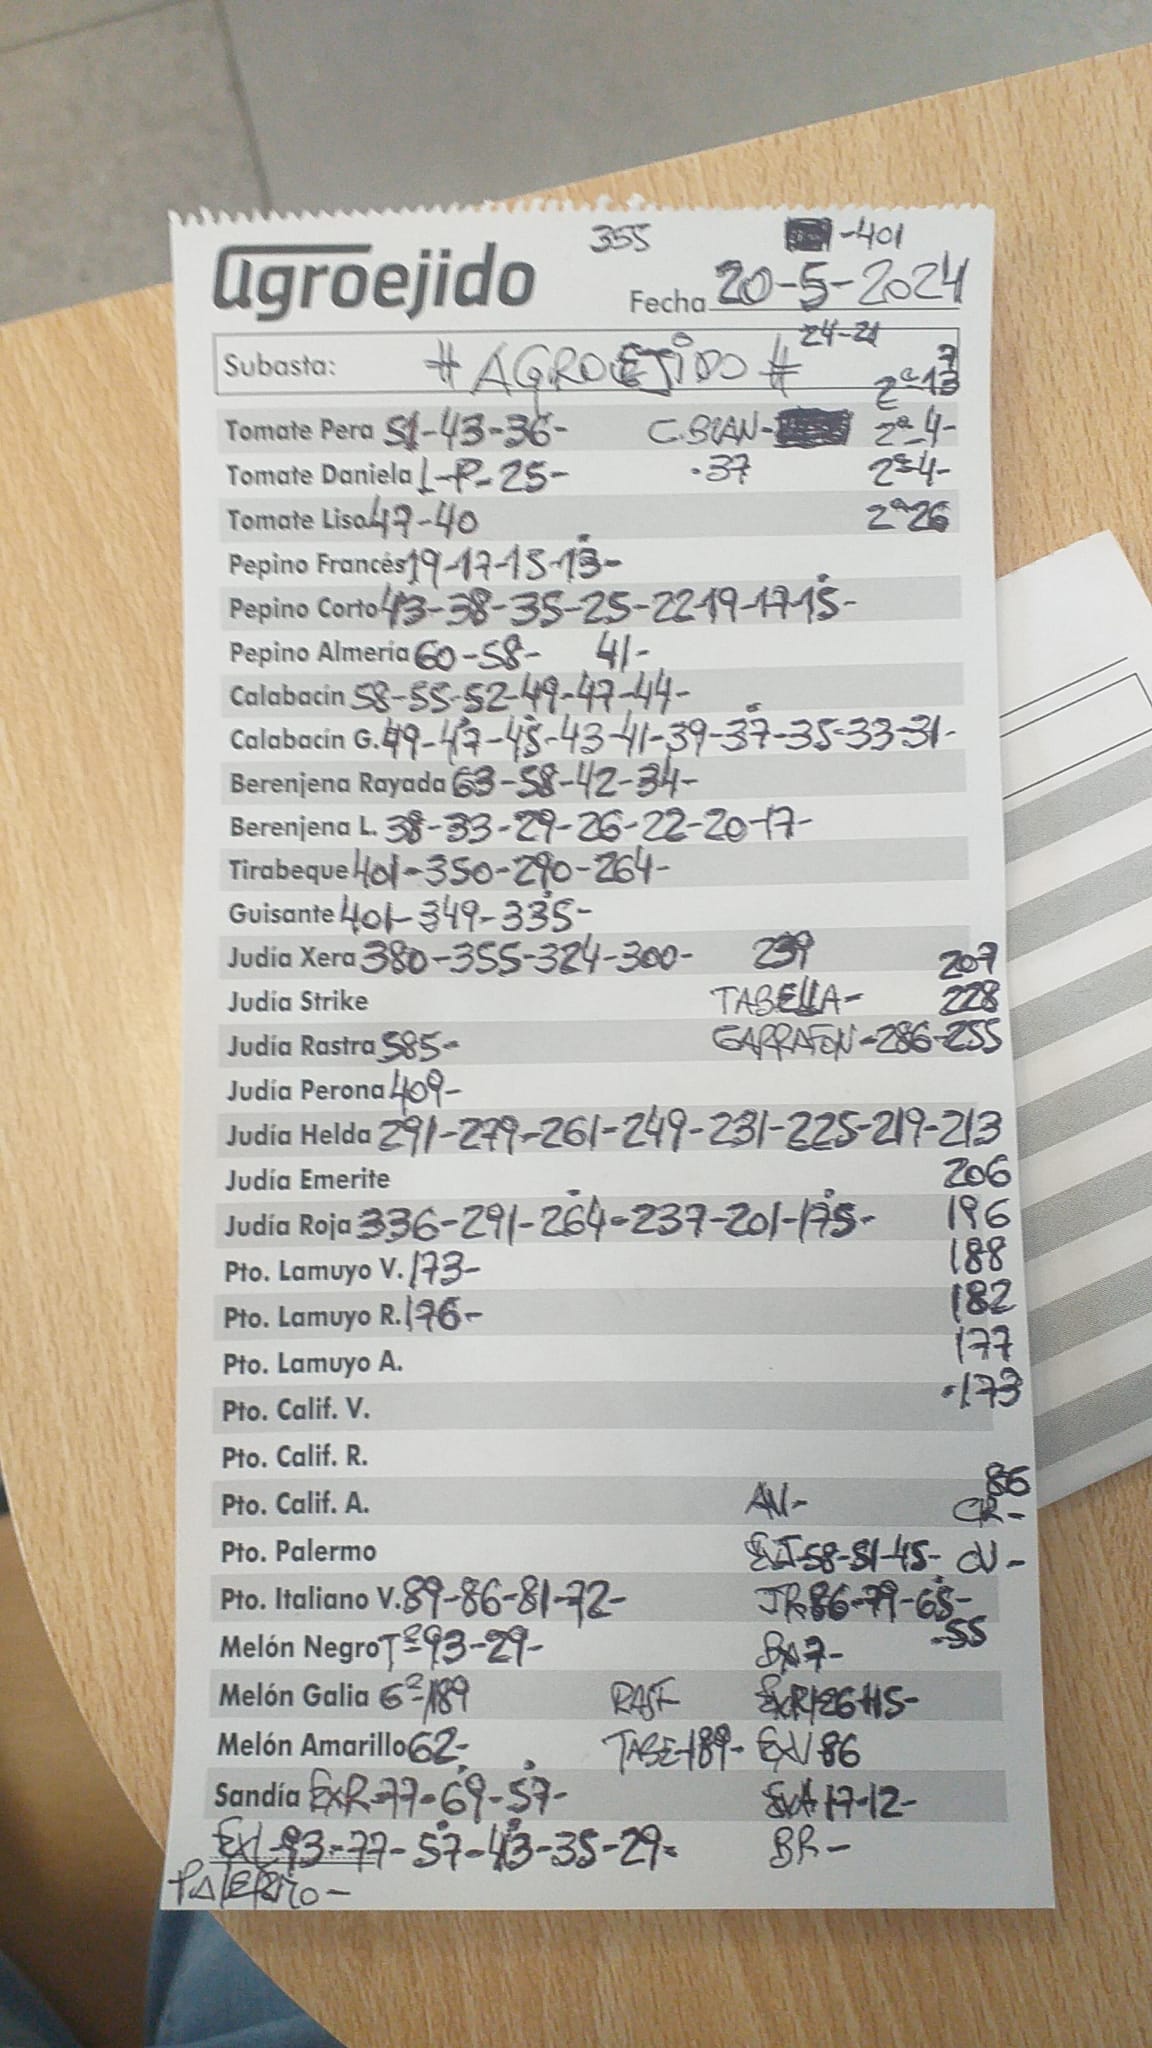 355 -401
agroejido
Fecha 20-5-2024
24-21
Subasta: # AGROEJIDO # 7
2ª-13
Tomate Pera 51-43-36- C.BLAN- 2ª-4-
Tomate Daniela L-P-25- .37 2ª-4-
Tomate Liso 47-40 2ª26
Pepino Francés 19-17-15-13-
Pepino Corto 43-38-35-25-22-19-17-15-
Pepino Almería 60-58- 41-
Calabacín 58-55-52-49-47-44-
Calabacín G. 49-47-45-43-41-39-37-35-33-31-
Berenjena Rayada 63-58-42-34-
Berenjena L. 38-33-29-26-22-20-17-
Tirabeque 401-350-290-264-
Guisante 401-349-335-
Judía Xera 380-355-324-300- 239 207
Judía Strike TABELLA- 228
Judía Rastra 585- GARRAFON-286-255
Judía Perona 409-
Judía Helda 291-279-261-249-231-225-219-213
Judía Emerite 206
Judía Roja 336-291-264-237-201-175- 196
Pto. Lamuyo V. 173- 188
Pto. Lamuyo R. 176- 182
Pto. Lamuyo A. 177
Pto. Calif. V. .173
Pto. Calif. R.
86
Pto. Calif. A. AN- CR-
Pto. Palermo 58-51-45- OV-
Pto. Italiano V. 89-86-81-72- JR86-79-65-
.55
Melón Negro Tº-93-29- BA7-
Melón Galia 6º-189 RAST ExR126-115-
Melón Amarillo 62- TABE-189- ExV 86
Sandía ExR-77-69-57- ExA 17-12-
93-77-57-43-35-29- BR-
PALERMO-